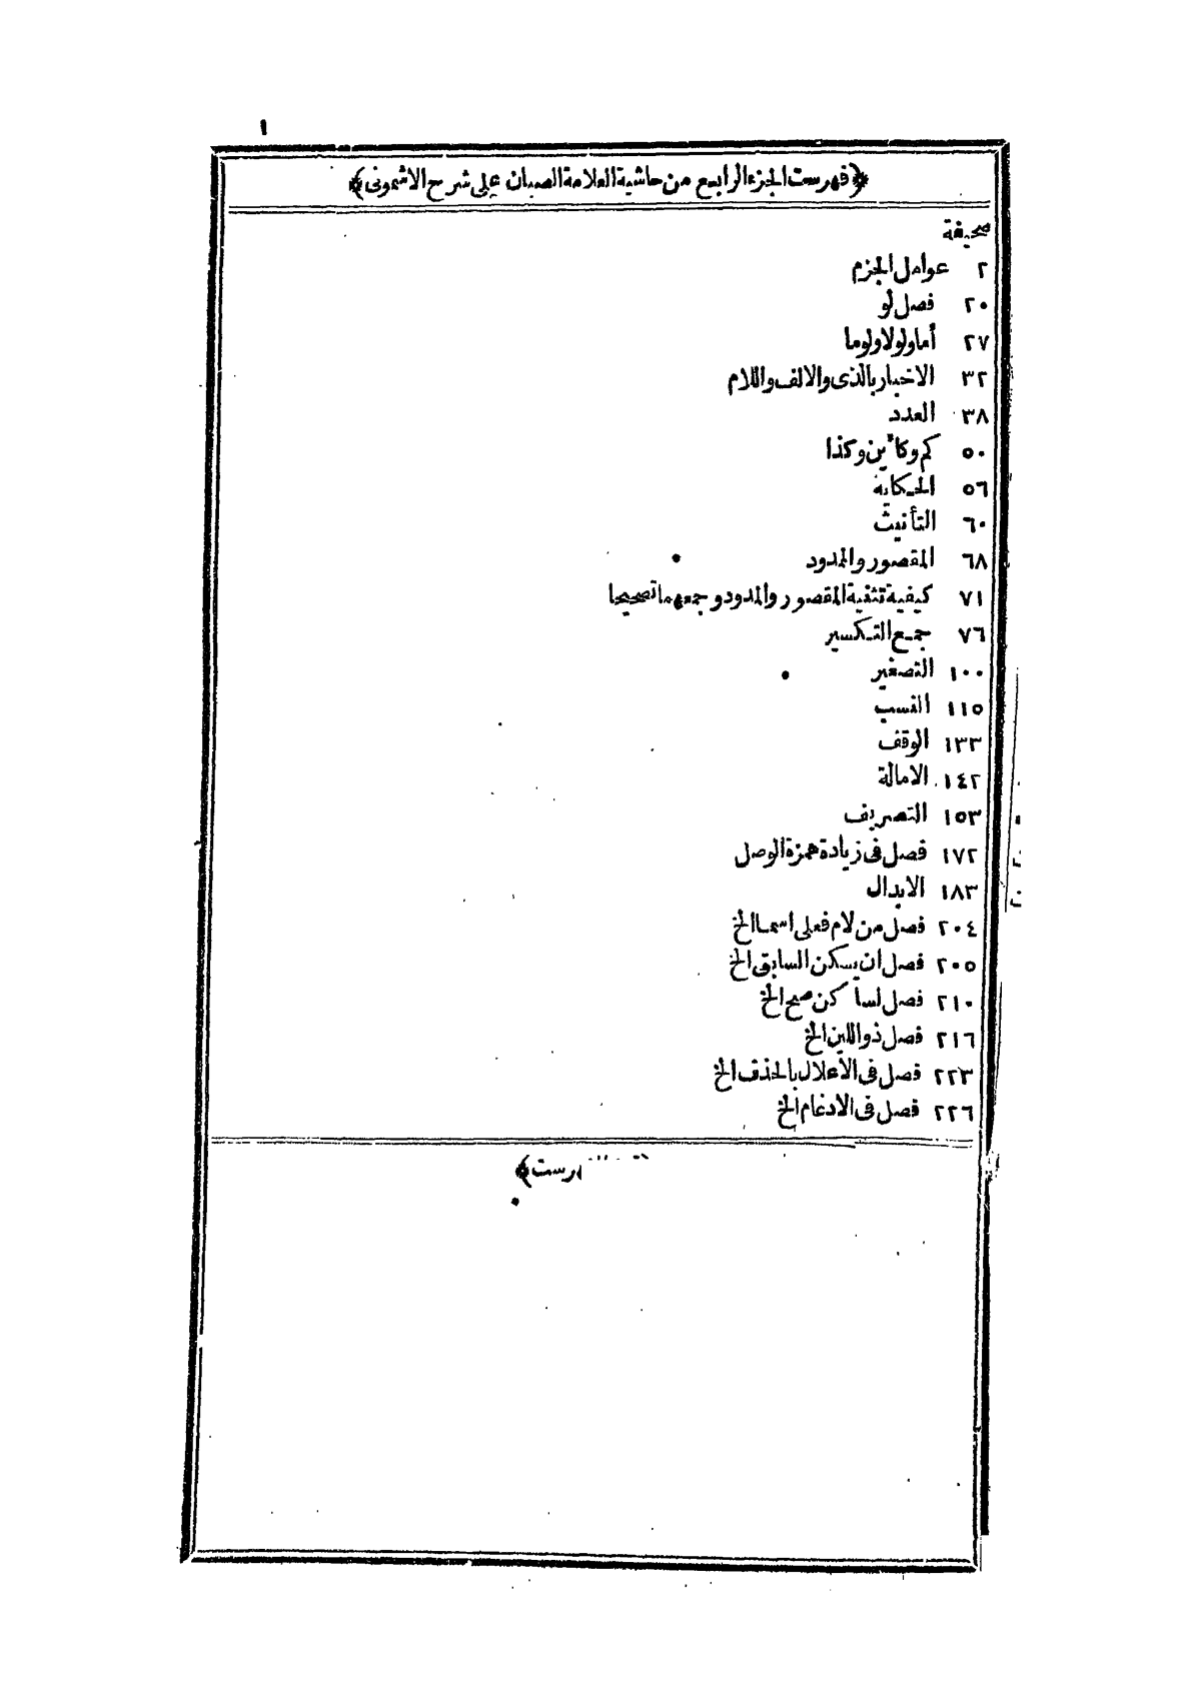 ١
﴿فهرست الجزء الرابع من حاشية العلامة الصبان على شرح الاشمونى﴾
صحيفة
٢ عوامل الجزم
٢٠ فصل لو
٢٧ أما ولولا ولوما
٣٢ الاخبار بالذى والالف واللام
٣٨ العدد
٥٠ كم وكأين وكذا
٥٦ الحكاية
٦٠ التأنيث
٦٨ المقصور والممدود
٧١ كيفية تثنية المقصور والممدود وجمعهما تصحيحا
٧٦ جمع التكسير
١٠٠ التصغير
١١٥ النسب
١٣٣ الوقف
١٤٢ الامالة
١٥٣ التصريف
١٧٢ فصل فى زيادة همزة الوصل
١٨٣ الابدال
٢٠٤ فصل من لام فعلى اسما الخ
٢٠٥ فصل ان يسكن السابق الخ
٢١٠ فصل لساكن صح الخ
٢١٦ فصل ذو اللين الخ
٢٢٣ فصل فى الاعلال بالحذف الخ
٢٢٦ فصل فى الادغام الخ